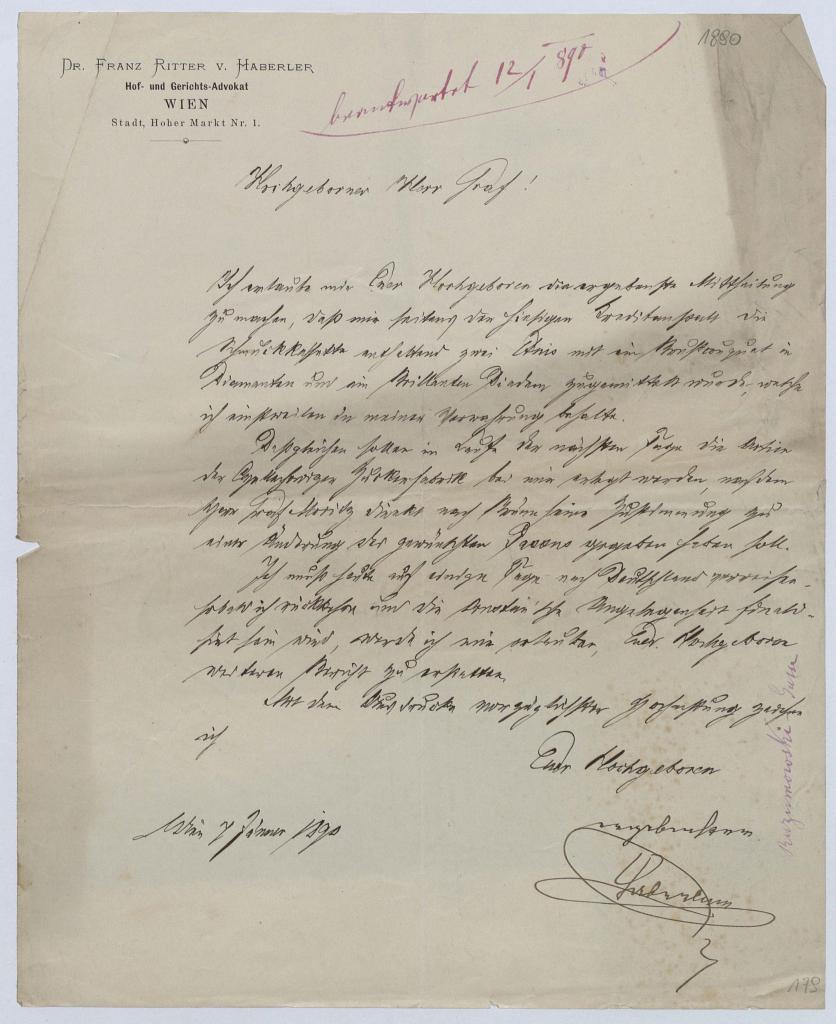 1890
DR. FRANZ RITTER V. HABERLER
Hof- und Gerichts-Advokat
WIEN
Stadt, Hoher Markt Nr. 1.
beantwortet 12/I 890
Hochgeborner Herr Graf!
Ich erlaube mir Euer Hochgeboren die ergebenste Mittheilung
zu machen, daß mir seitens der hiesigen Kreditanstalt die
Schmuckkassette enthaltend zwei Etuis mit ein Brustbouquet in
Diamanten und ein Brillanten Diadem zugemittelt wurde, welche
ich einstweilen in meiner Verwahrung behalte.
Desgleichen sollen im Laufe der nächsten Tage die Actien
der Zuckerfabrik bei mir erlegt werden nachdem
Herr Graf Moritz direkt nach Brünn seine Zustimmung zu
einer Änderung des gewünschten gegeben haben soll.
Ich muß heute auf einige Tage nach Deutschland verreisen,
sobald ich rückkehre und die Angelegenheit finali-
sirt sein wird, werde ich mir erlauben, Euer Hochgeboren
weiteren Bericht zu erstatten.
Mit dem Ausdrucke vorzüglichster Hochachtung zeichne
ich
Euer Hochgeboren
Wien 7 Jänner 1890
ergebenster
Haberler
Razumowski
179